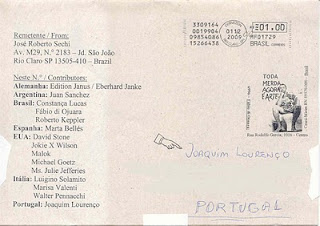 Remetente / From:
José Roberto Sechi
Av. M29, N.º 2183 – Jd. São João
Rio Claro SP 13505-410 – Brazil
Neste N.º / Contributors:
Alemanha: Edition Janus / Eberhard Janke
Argentina: Juan Sanchez
Brasil: Constança Lucas
Fábio di Ojuara
Roberto Keppler
Espanha: Marta Bellés
EUA: David Stone
Jokie X Wilson
Malok
Michael Goetz
Ms. Julie Jefferies
Itália: Luigino Solamito
Marisa Valenti
Walter Pennacchi
Portugal: Joaquim Lourenço
3309164
00019904
09854086
15266438
0112
2009
01.00
BRASIL
TODA
MERDA
AGORA
É ARTE
JOAQUIM LOURENÇO
PORTUGAL